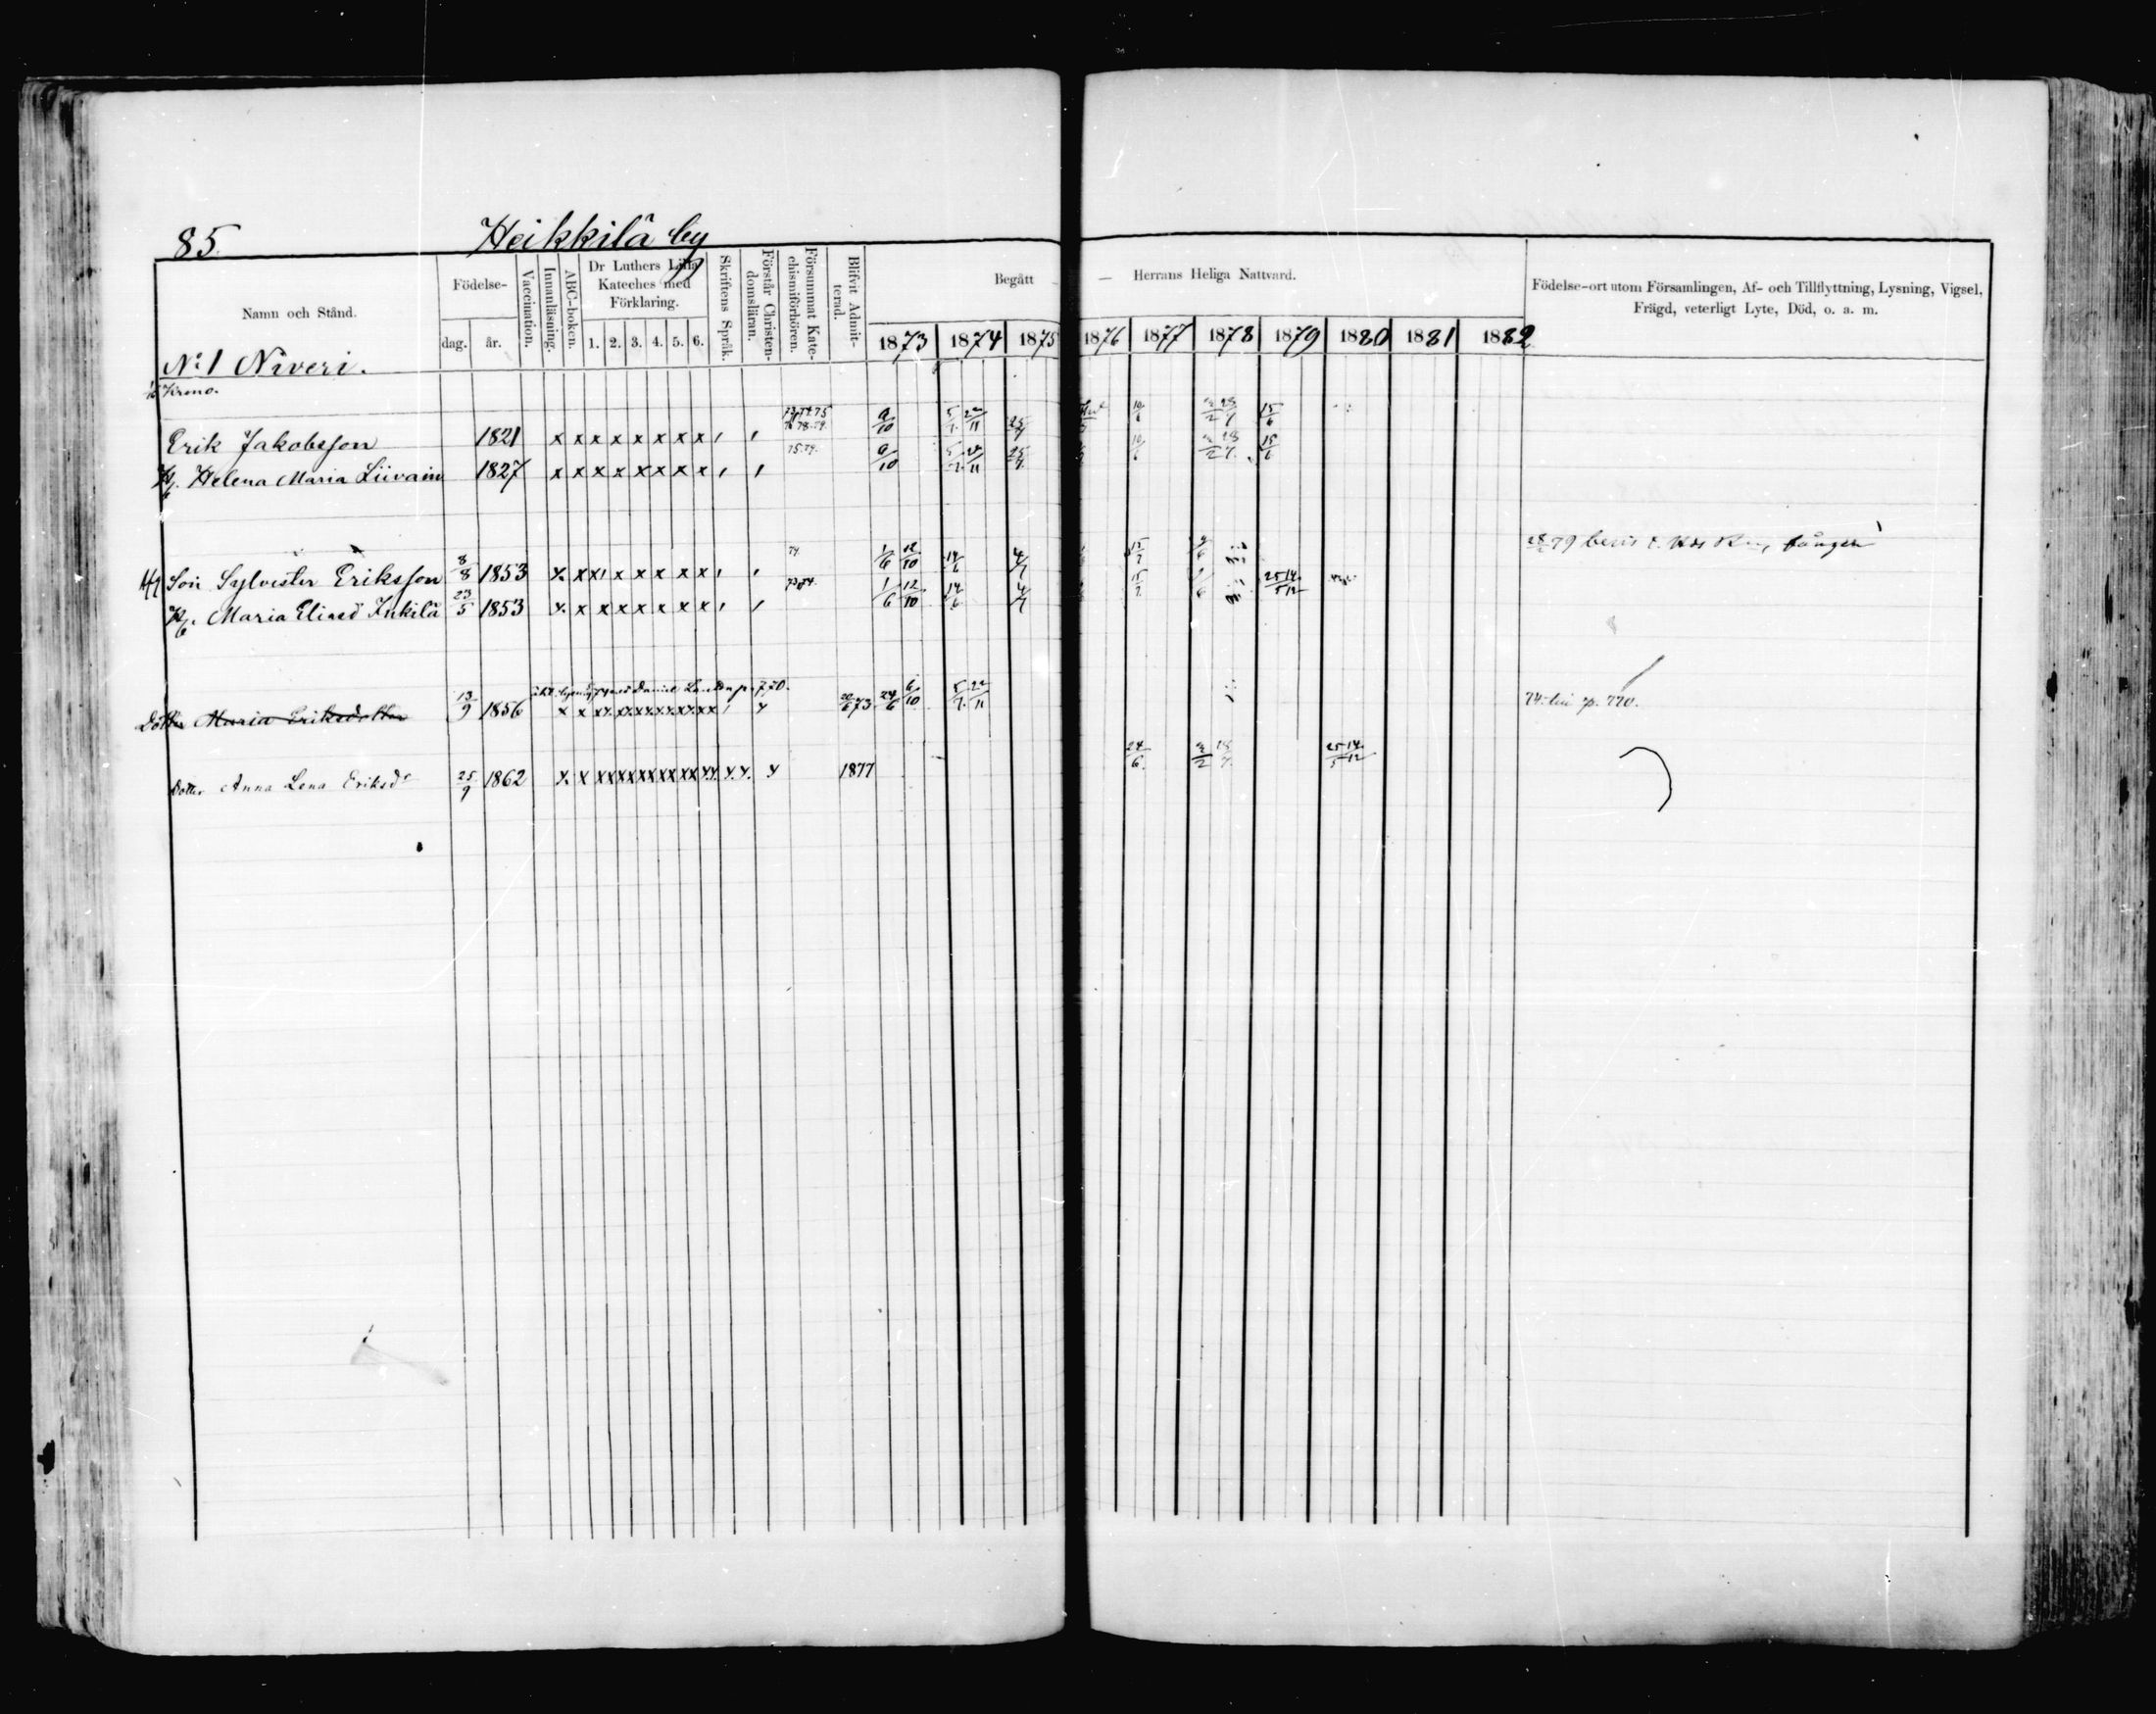 85.
Heikkilä by
Namn och Stånd.
Födelse-
dag.
år.
Vaccination.
Innanläsning.
ABC-boken.
Dr Luthers Lilla
Kateches med
Förklaring.
1. 2. 3. 4. 5. 6.
Skriftens Språk.
Förstår Christen-
domsläran.
Försummat Kate-
chismiförhören.
Blifvit Admit-
terad.
Begått — Herrans Heliga Nattvard.
1873 1874 1875 1876 1877 1878 1879 1880 1881 1882
Födelse-ort utom Församlingen, Af- och Tillflyttning, Lysning, Vigsel,
Frägd, veterligt Lyte, Död, o. a. m.
No 1 Niveri.
73.74.75
76.78.79. 9/10 5/7 22/11 25/7 10/6 28/7 15/6
Erik Jakobsson 1821 x x x x x x x x
75.79. 9/10 5/7 22/11 25/7 10/6 28/7 15/6
H. Helena Maria Liivain 1827 x x x x x x x x
74. 1/6 12/10 14/6 4/7 15/7
28/2 79
Son Sylvester Eriksson 8/8 1853 x x x x x x x x
73.74. 1/6 12/10 14/6 4/7 15/7 25/5 14/12
H. Maria Eliasd Inkilä 23/5 1853 x x x x x x x x
Daniel p. 770.
Dotter Maria Eriksdotter 13/9 1856 x x xx xx xx xx xx xx 73 24/6 6/10 5/7 22/11 74 p. 770.
24/6 25/5 14/12
Dotter Anna Lena Eriksdr 25/9 1862 x x xx xx xx xx xx xx x.x. x 1877